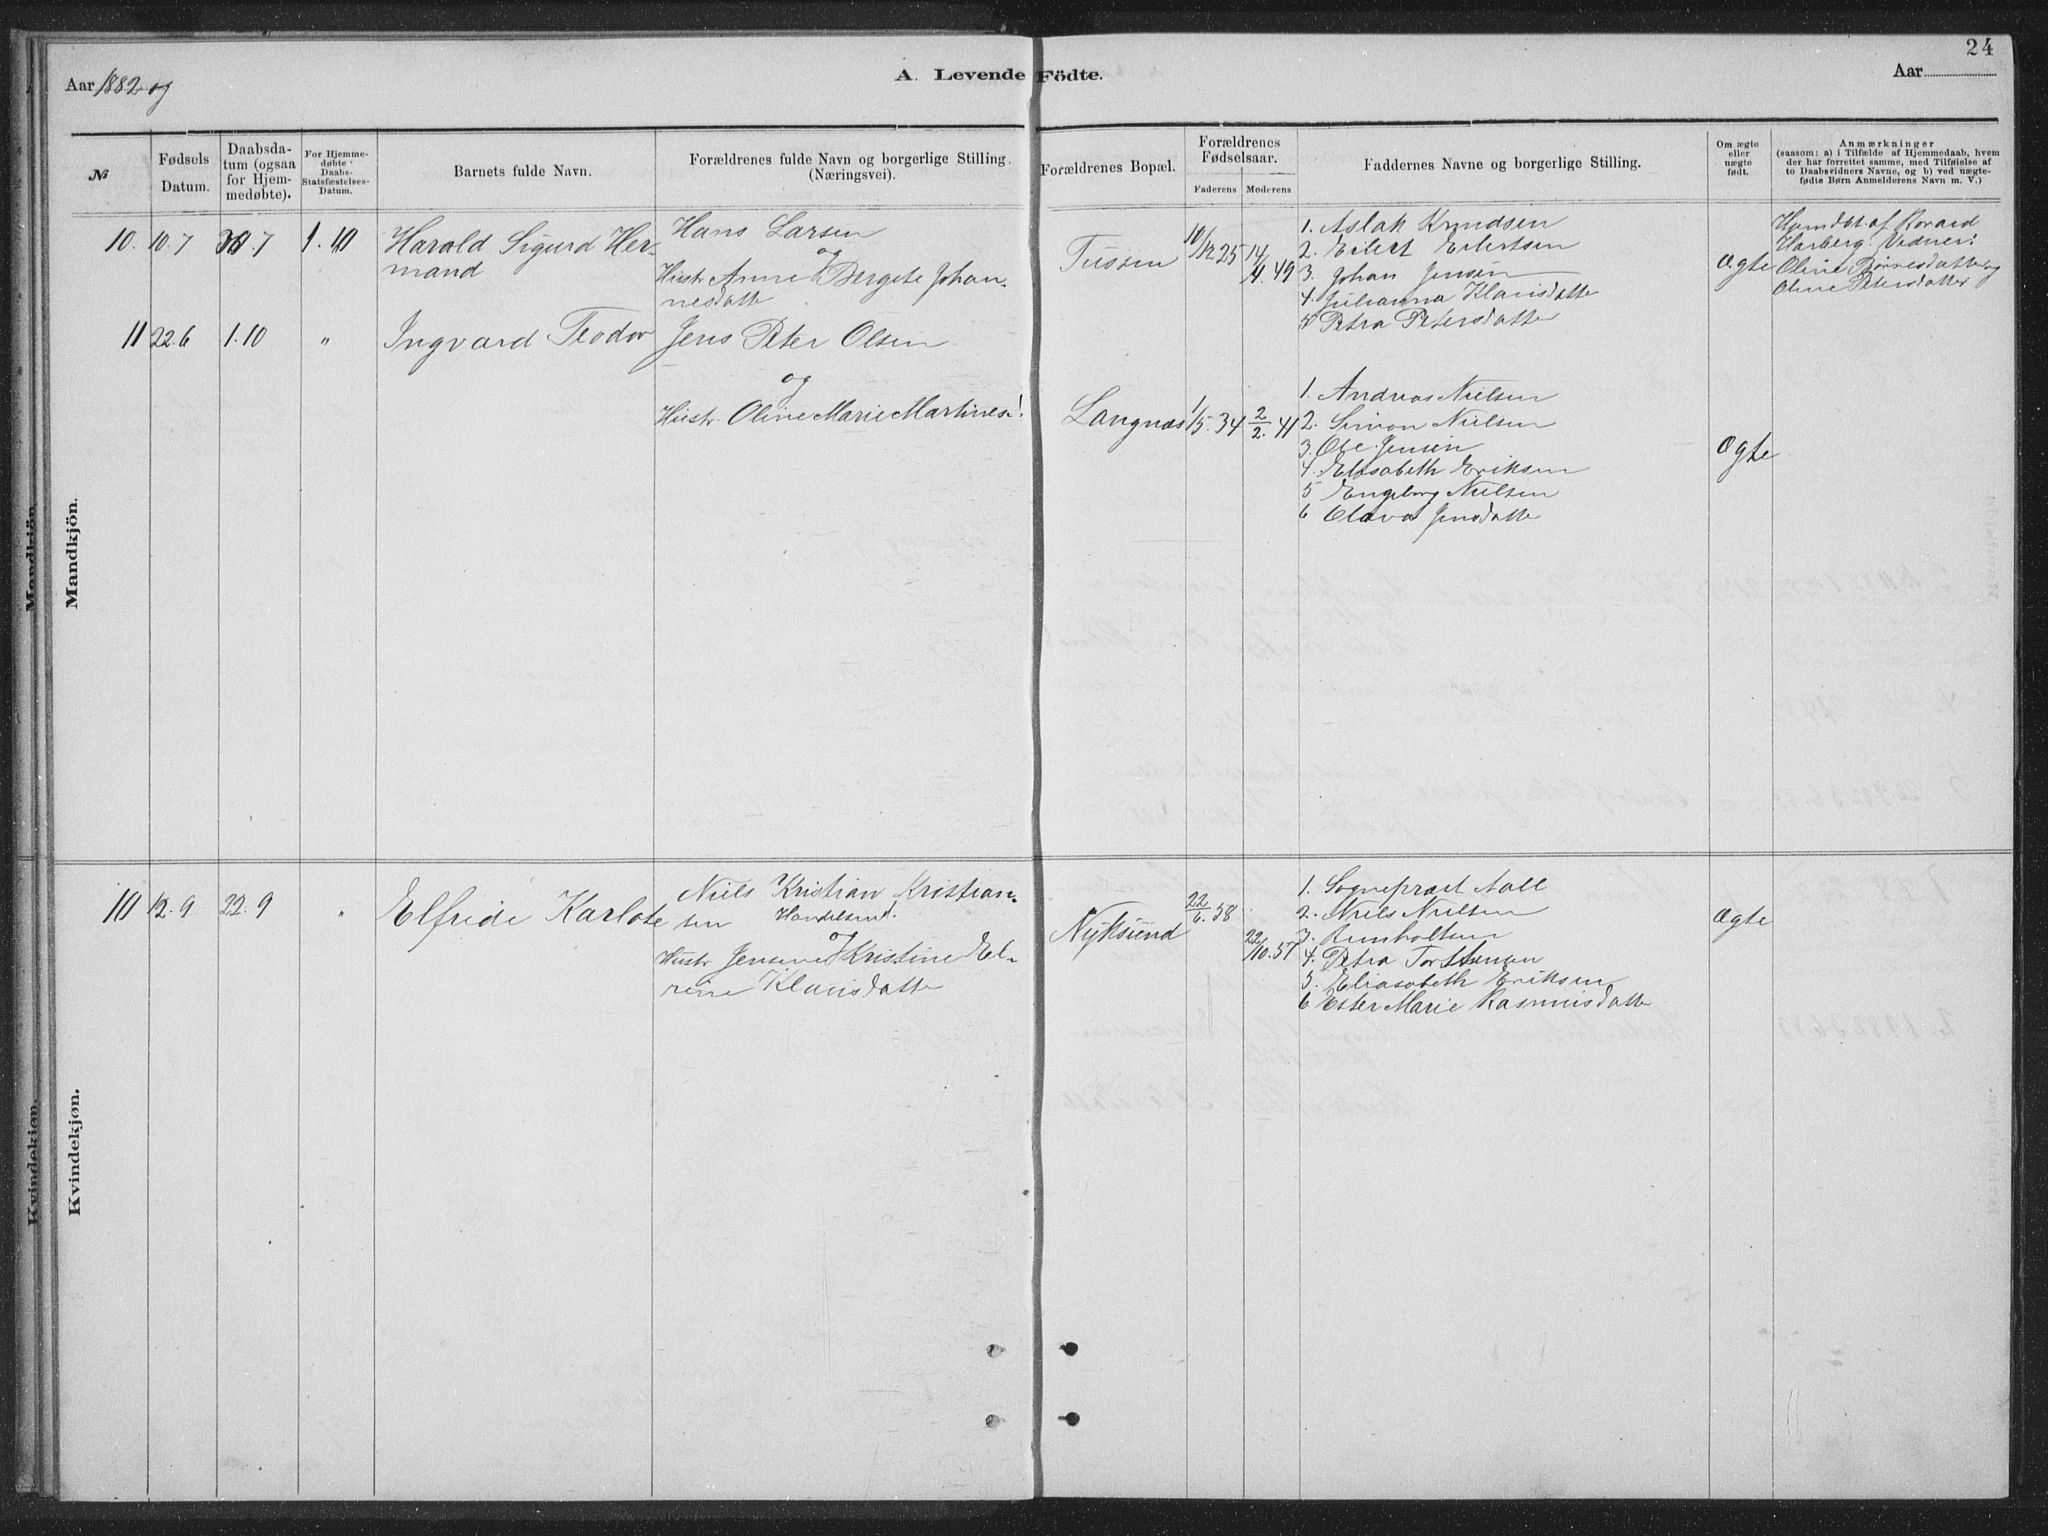 24
Aar 1882 og
A. Levende Födte.
Aar
№
Fødsels Datum.
Daabsdatum (ogsaa for Hjemmedøbte).
For Hjemmedøbte Daabs-Statsfæstelses-Datum.
Barnets fulde Navn.
Forældrenes fulde Navn og borgerlige Stilling. (Næringsvei).
Forældrenes Bopæl.
Forældrenes Fødselsaar.
Faderens
Moderens
Faddernes Navne og borgerlige Stilling.
Om ægte eller uægte født.
Anmærkninger
(saasom: a) i Tilfælde af Hjemmedaab, hvem der har forrettet samme, med Tilføielse af to Daabsvidners Navne, og b) ved uægtefødte Børn Anmelderens Navn m. V.)
Mandkjön.
10. 10.7 30.7 1.10
Harald Sigurd Hermand
Hans Larsen
og
Hustr. Anne Bergete Johannesdatte
Tussen
10/12 25
14/4. 49
1. Aslak Knudsen
2. Eilert Eilertsen
3. Johan Jensen
4. Julianna Klausdatte
5 Petra Petersdatte
Ægte
Hjemdøt af
Harberg. Vidner:
Oline
Oline Petersdatter
11 22.6 1.10 "
Ingvard Teodor
Jens Peter Olsen
og
Hustr. Oline Marie Martines.
Langnæs
1/5. 34
2/2. 41
1. Andreas Nielsen
2. Simon Nielsen
3. Ole Jensen
4. Elisabeth Eriksen
5 Engeborg Nielsen
6 Olava Jensdatte
Ægte
Kvindekjøn.
10 12.9 22.9 "
Elfride Karlote
Niels Kristian Kristiansen
Handelsmd.
og
Hustr. Jensine Kristine Elrine Klausdatte
Nyksund
22/6. 58
22/10. 57
1. Sogneprest Aall
2. Niels Nielsen
3. Reinholtsen
4. Petra Torstensen
5. Eliasabeth Eriksen
6 Ester Marie Rasmusdatte
Ægte